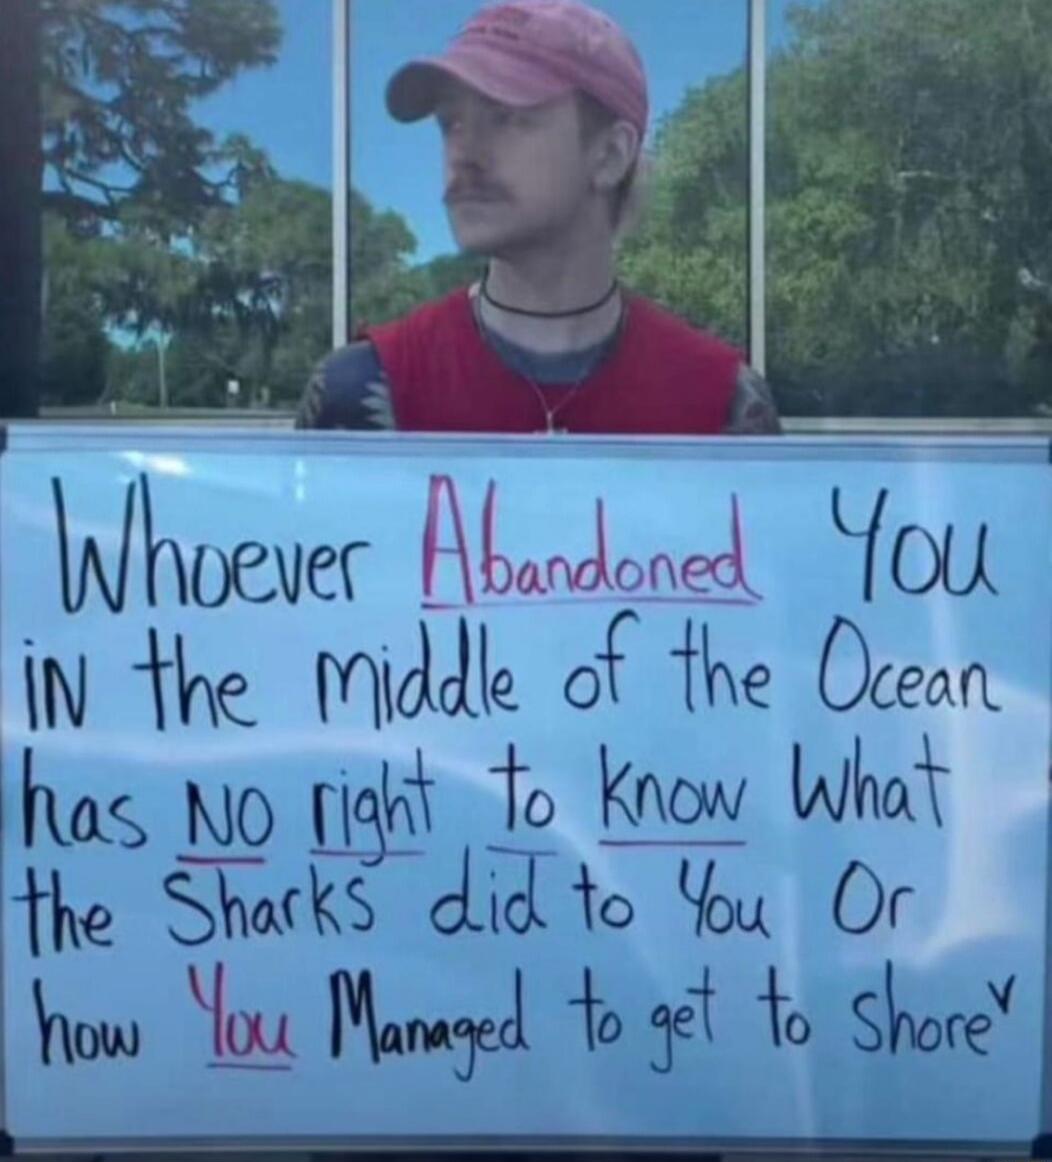 Whoever Abandoned You
iN the middle of the Ocean
has NO right to know What
the Sharks did to You Or
how You Managed to get to shore